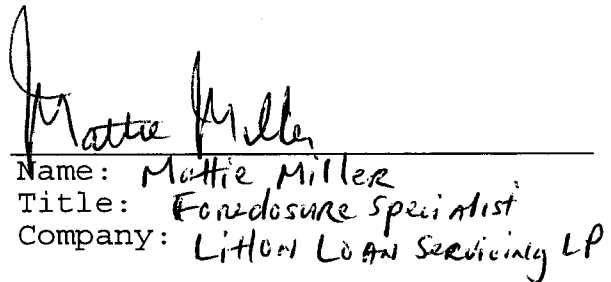 Mattie Miller
Name: Mattie Miller
Title: Foreclosure Specialist
Company: Litton Loan Servicing LP